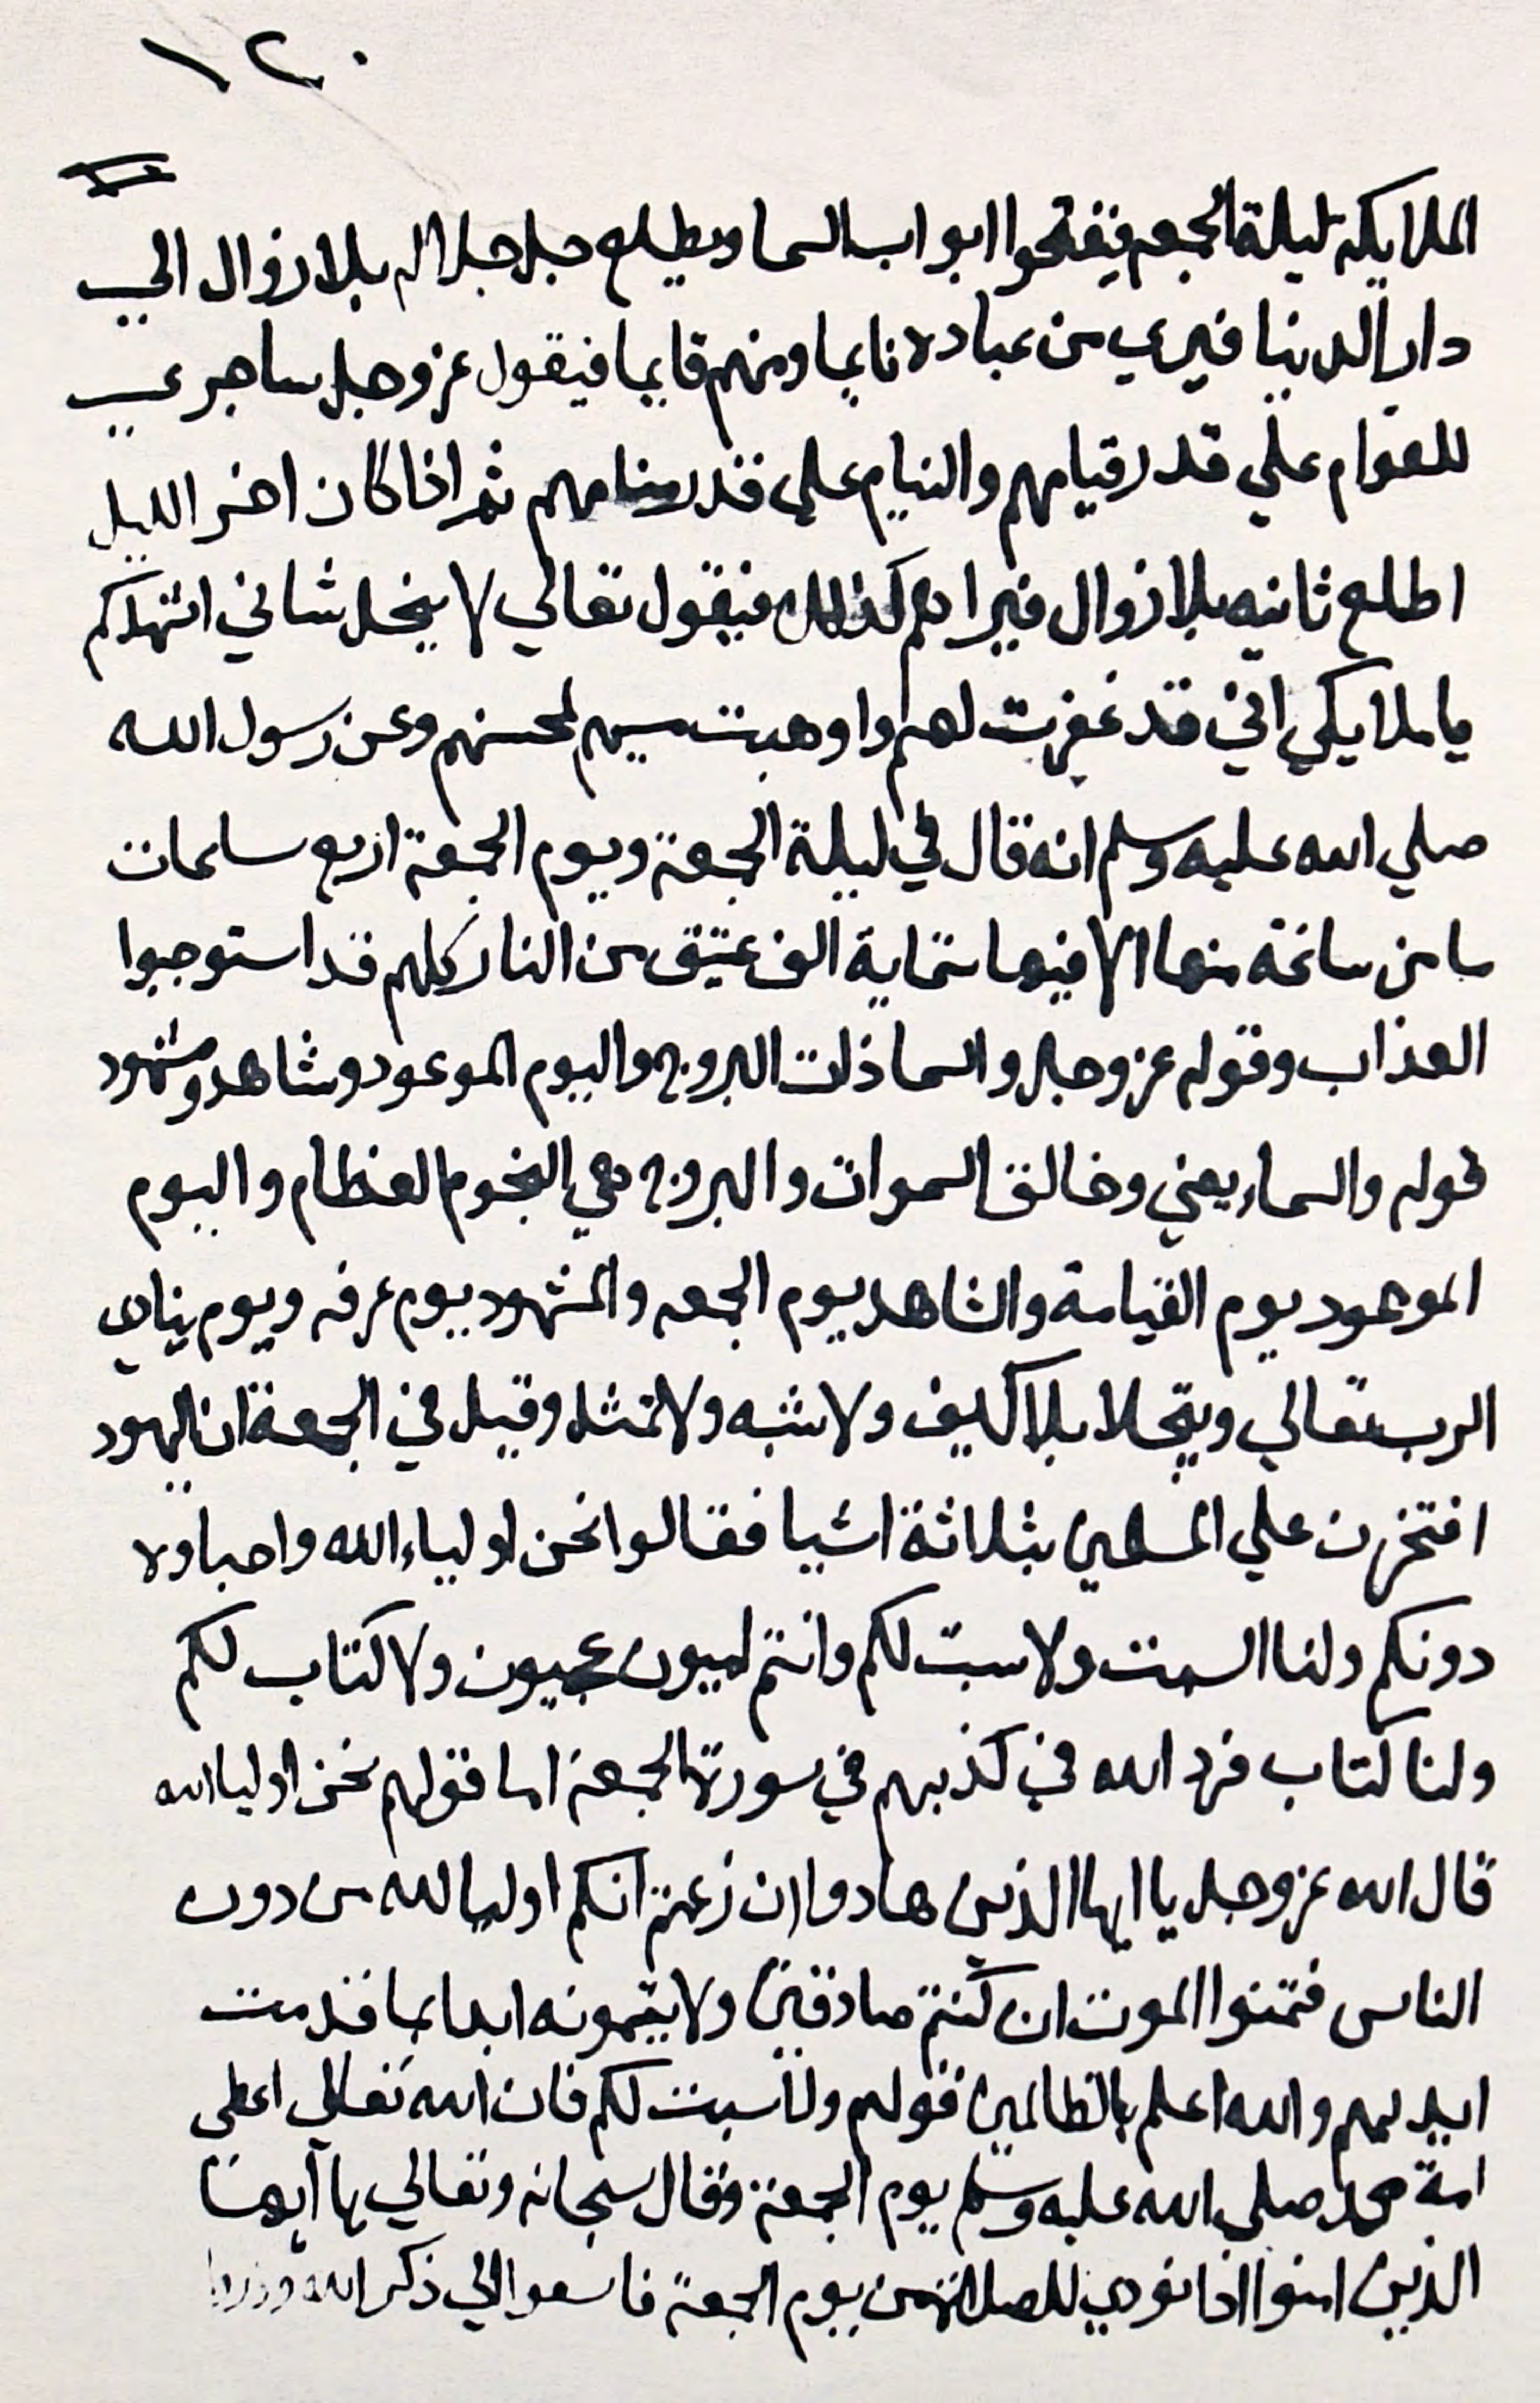 ١٢٠
الملايكه ليلة الجمعه فيفتحوا ابواب السما ويطلع جل جلاله بلا زوال الي
دار الدنيا فيري من عباده نايما ومنهم قايما فيقول عز وجل ساجري
للقوام علي قدر قيامهم والنيام علي قدر منامهم ثم اذا كان اخر الليل
اطلع ثانيه بلا زوال فيراهم كذلك فيقول تعالي لا يبخل شاني اشهدكم
يا ملايكي اني قد غفرت لهم واوهبت مسيهم لمحسنهم وعن رسول الله
صلي الله عليه وسلم انه قال في ليلة الجمعة ويوم الجمعة اربع ساعات
ما من ساعة منها الا فيها ستماية الف عتيق من النار كلهم قد استوجبوا
العذاب وقوله عز وجل والسما ذات البروج واليوم الموعود وشاهد ومشهود
قوله والسماء يعني وخالق السموات والبروج هي النجوم العظام واليوم
الموعود يوم القيامة والشاهد يوم الجمعه والمشهود يوم عرفه ويوم ينادي
الرب تعالي ويتجلا بلا كيف ولا شبه ولا تمثل وقيل في الجمعة ان اليهود
افتخرت علي المسلمين بثلاثة اشيا فقالوا نحن اولياء الله واحباوه
دونكم ولنا السبت ولا سبت لكم وانتم اميون عجيون ولا كتاب لكم
ولنا كتاب فرد الله في كذبهم في سورة الجمعة اما قولهم نحن اوليا الله
قال الله عز وجل يا ايها الذين هادوا ان زعمتم انكم اوليا لله من دون
الناس فتمنوا الموت ان كنتم صادقين ولا يتمونه ابدا بما قدمت
ايديهم والله اعلم بالظالمين قولهم ولا سبت لكم فان الله تعالي اعطي
امة محمد صلي الله عليه وسلم يوم الجمعة وقال سبحانه وتعالي يا ايها
الذين امنوا اذا نودي للصلاة من يوم الجمعة فاسعوا الي ذكر الله وذروا